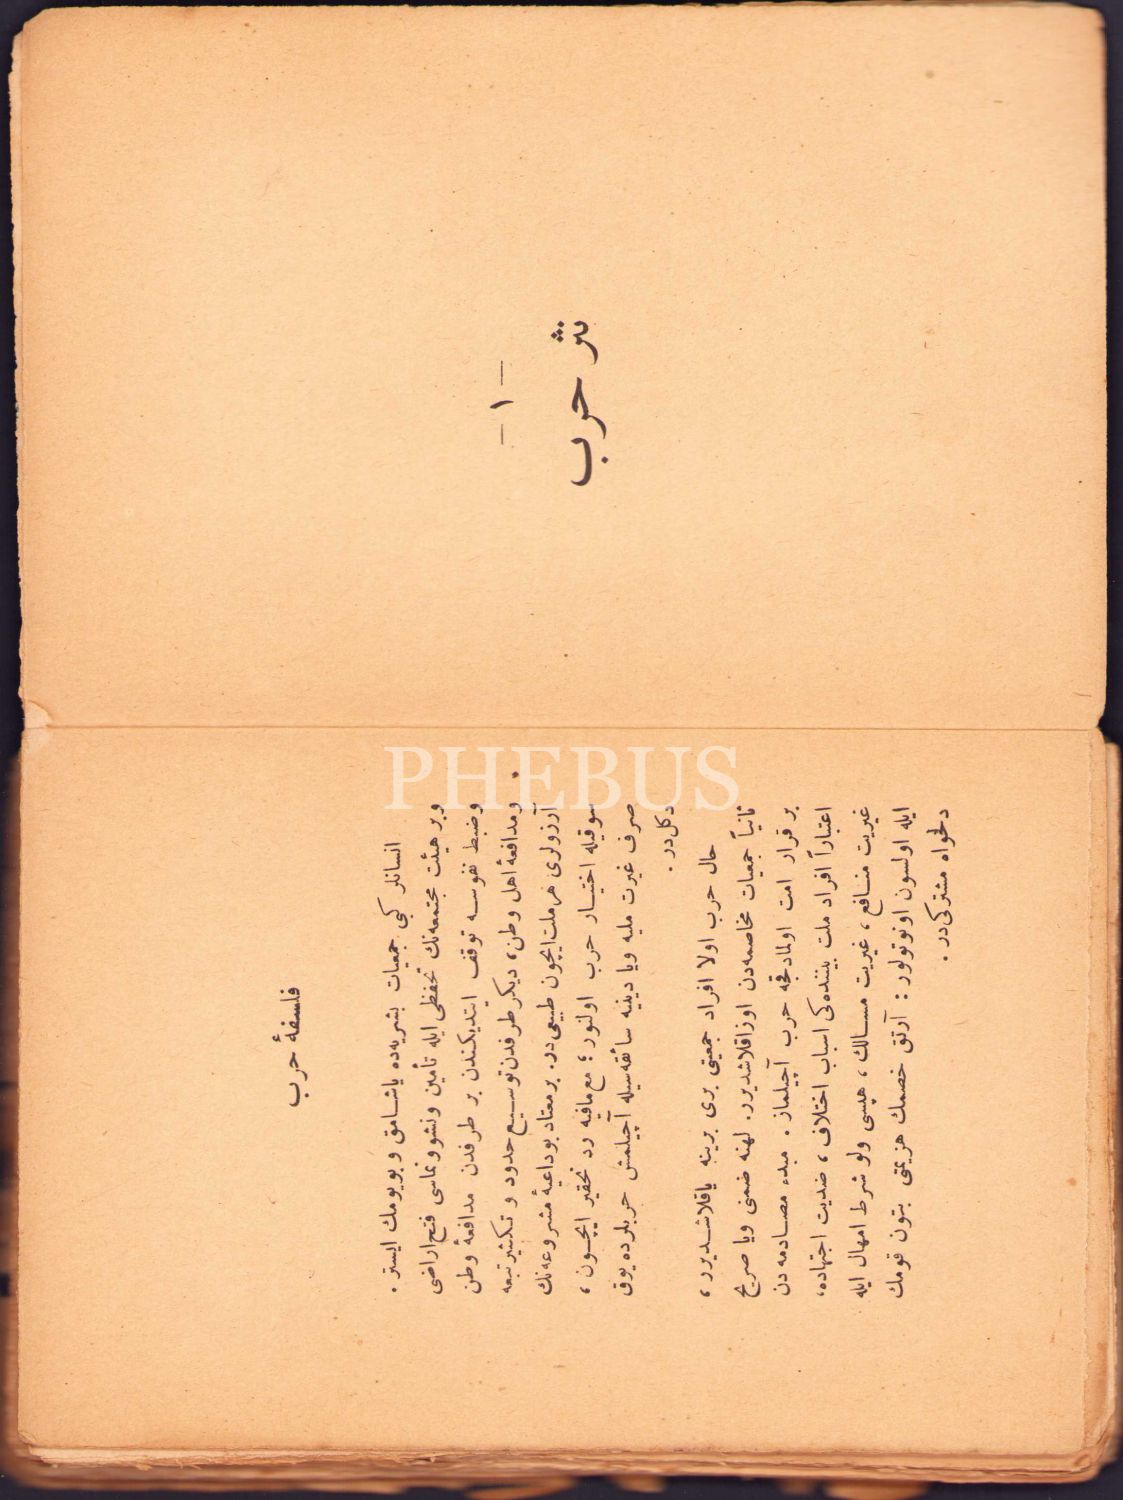 — ١ —
نثر حرب
فلسفهٔ حرب
انسانلر كبی جمعیات بشریه‌ده یاشامق و بویومك ایستر .
وبر هیئت مجتمعه‌نك تحفظی ایله تأمین ونشوونماسی فتح اراضی
وضبط نفوسه توقف ایتدیكندن بر طرفدن مدافعهٔ وطن
ومدافعهٔ اهل وطن، دیكر طرفدن توسیع حدود و تكثیر تبعه
آرزولری هر ملت ایچون طبیعی‌در. بر معتاد بوداعیهٔ مشروعه‌نك
سوقیله اختیار حرب اولنور ؛ مع مافیه رد تحقیر ایچون ،
صرف غیرت ملیه ویا دینیه سائقه‌سیله آچیلمش حربلرده یوق
دكل‌در .
حال حرب اولا افراد جمعیتی بری برینه یاقلاشدیرر ،
ثانیاً جمعیات مخاصمه‌دن اوزاقلاشدیرر. لهنه ضمنی ویا صریح
بر قرار امت اولمادقجه حرب آچیلماز . مبدء مصادمه دن
اعتباراً افراد ملت بیننده‌كی اسباب اختلاف ، ضدیت اجتهاده،
غیریت منافع ، غیریت مسالك ، هپسی ولو شرط امهال ایله
ایله اولسون اونوتولور : آرتق خصمك هزیمتی بتون قومك
دلخواه مشتركی‌در .
PHEBUS